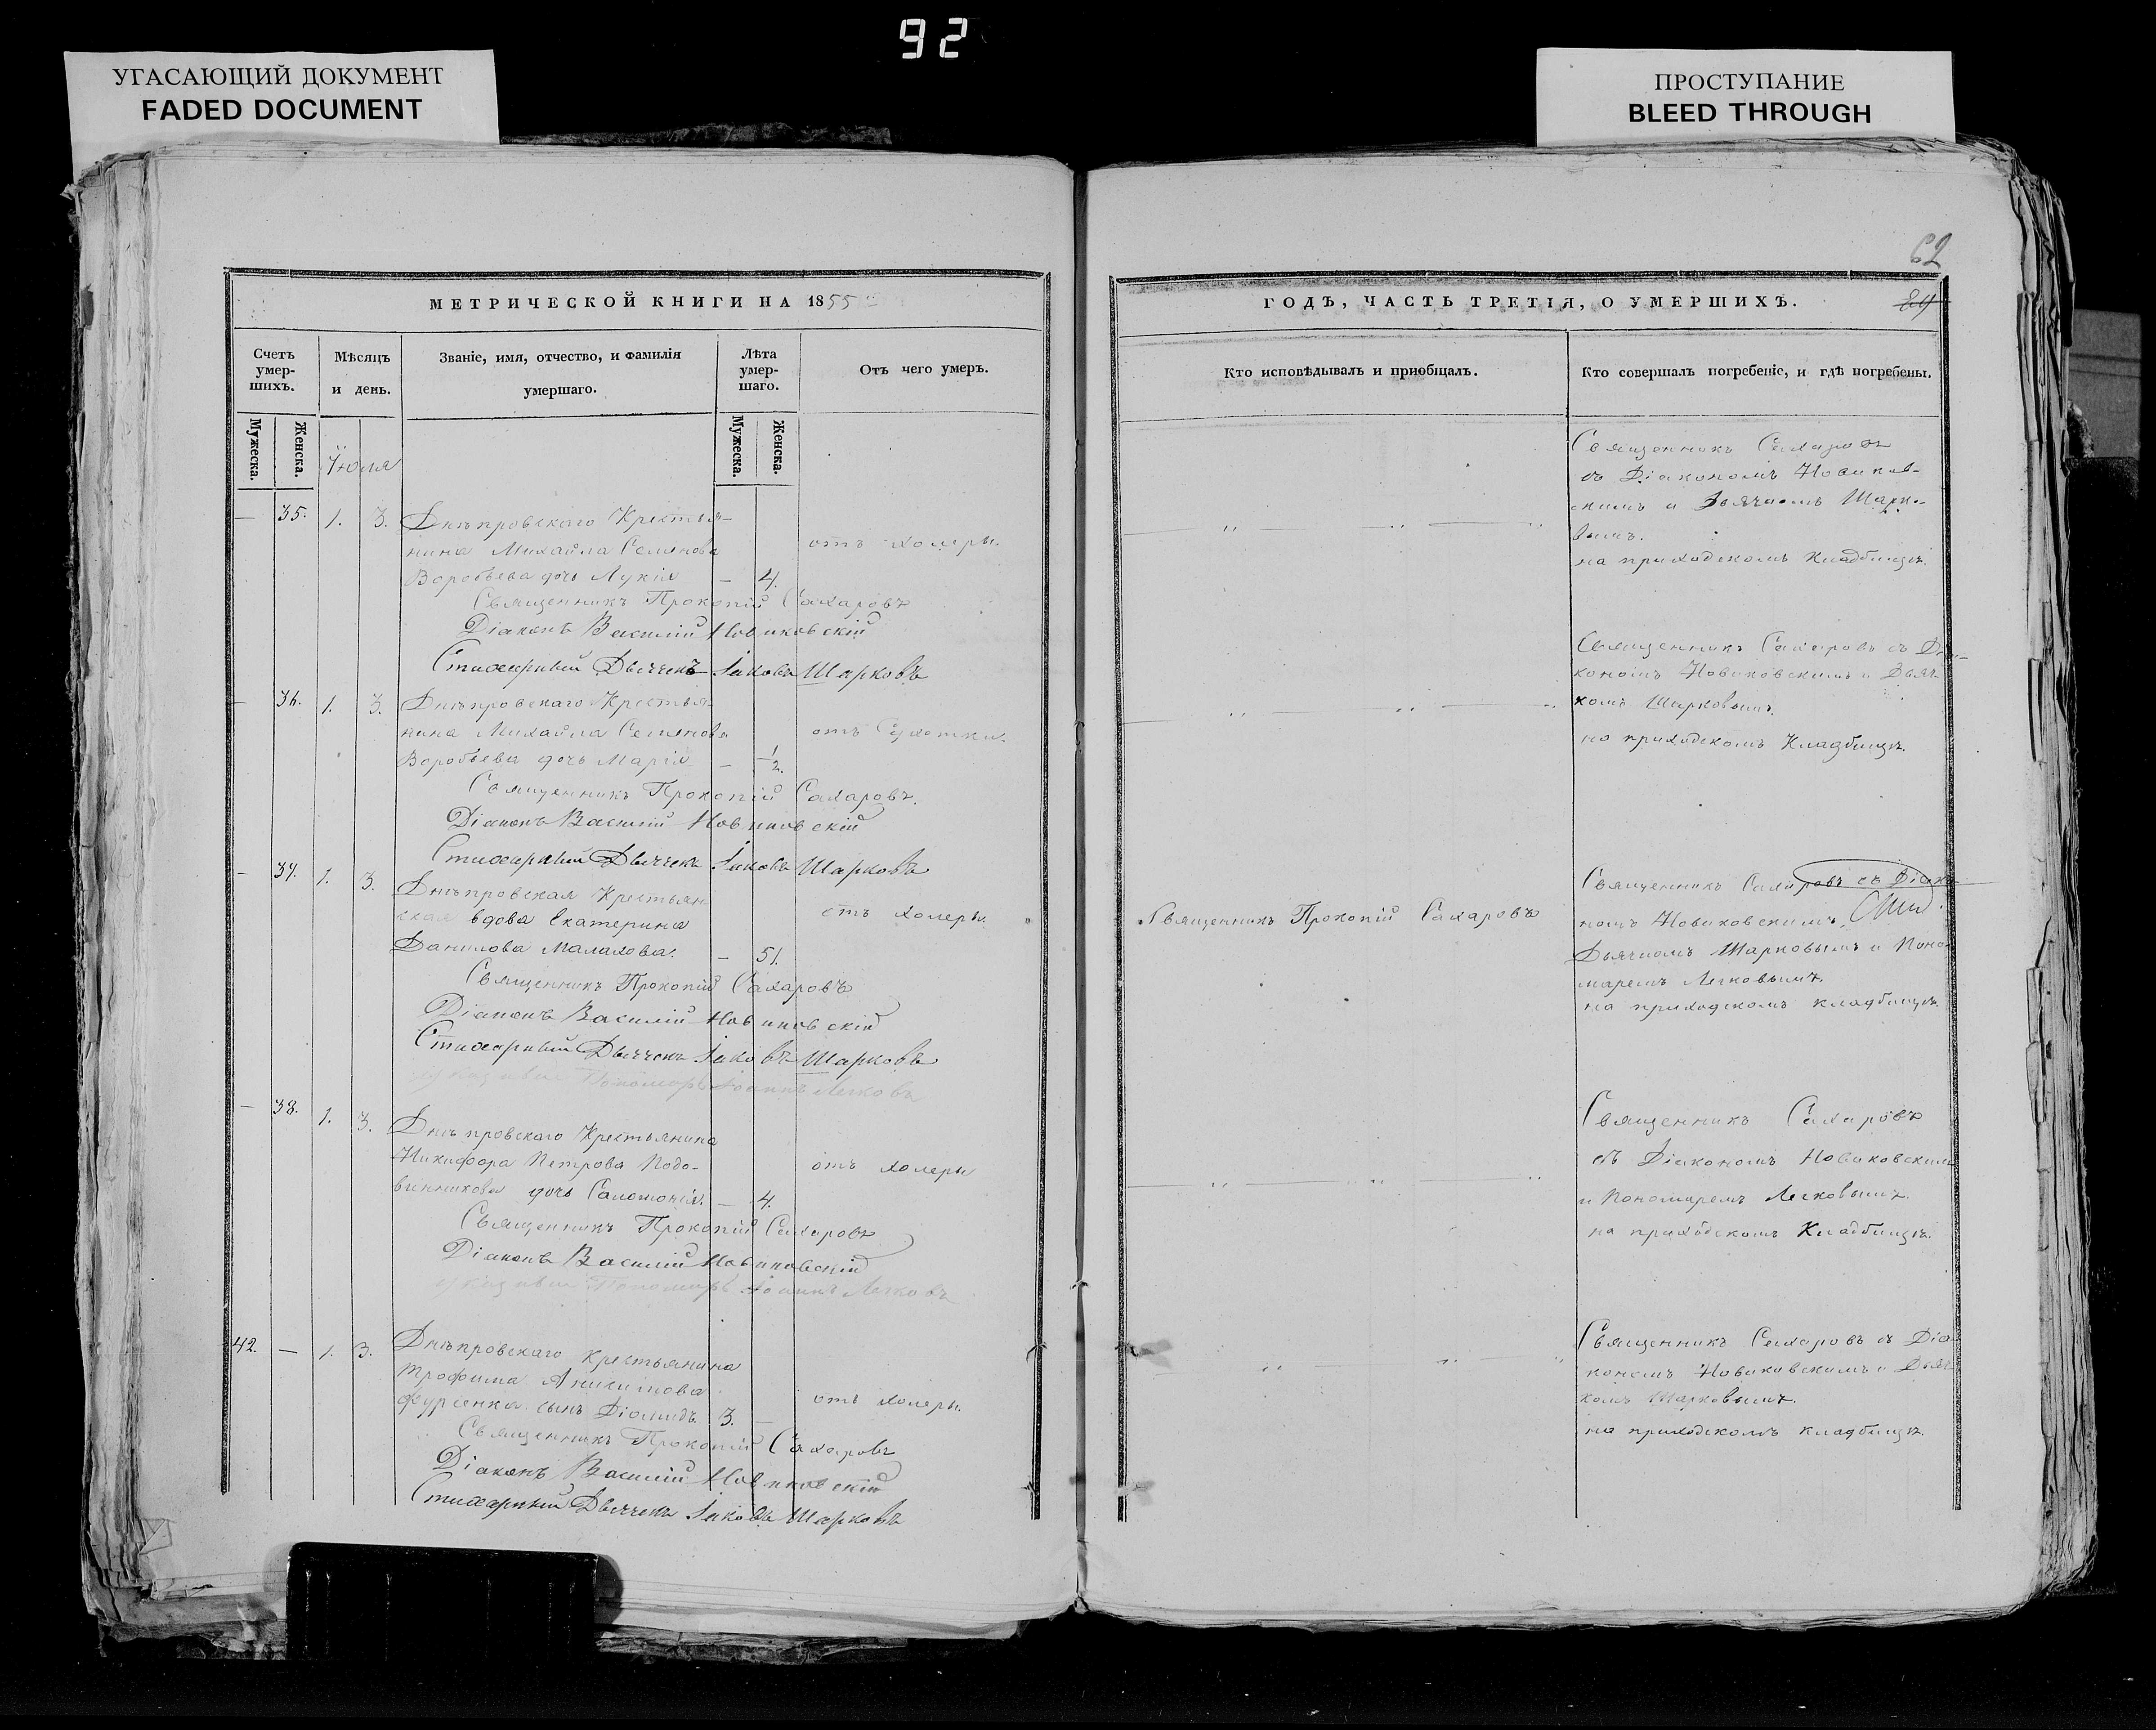 92
УГАСАЮЩИЙ ДОКУМЕНТ
FADED DOCUMENT
ПРОСТУПАНИЕ
BLEED THROUGH
МЕТРИЧЕСКОЙ КНИГИ НА 1855
Счетъ умер-шихъ.
Мѣсяцъ и день.
Званіе, имя, отчество, и фамилія умершаго.
Лѣта умер-шаго.
Отъ чего умеръ.
Мужеска.
Женска.
Мужеска.
Женска.
Іюля
— 35. 1. 3. Днѣпровскаго Крестья-
нина Михайла Семенова
отъ холеры.
Воробьева дочь Лукія — 4.
Священникъ Прокопій Сахаровъ
Діаконъ Василій Новиковскій
Стихарный Дьячекъ Іаковъ Шарковъ
— 36. 1. 3. Днѣпровскаго Крестья-
нина Михайла Семенова
отъ Сухотки.
Воробьева дочь Марія — 1/2.
Священникъ Прокопій Сахаровъ.
Діаконъ Василій Новиковскій
Стихарный Дьячекъ Іаковъ Шарковъ
— 37. 1. 3. Днѣпровская Крестьян-
ская вдова Екатерина
отъ холеры.
Данилова Малахова. — 51.
Священникъ Прокопій Сахаровъ
Діаконъ Василій Новиковскій
Стихарный Дьячекъ Іаковъ Шарковъ
Пономарь Іоаннъ Легковъ
— 38. 1. 3. Днѣпровскаго Крестьянина
Никифора Петрова Подо-
отъ холеры
винникова дочь Саломонія. — 4.
Священникъ Прокопій Сахаровъ
Діаконъ Василій Новиковскій
Пономарь Іоаннъ Легковъ
42. — 1. 3. Днѣпровскаго Крестьянина
Трофима
отъ холеры.
Фурсенка сынъ Діомидъ 3. —
Священникъ Прокопій Сахаровъ
Діаконъ Василій Новиковскій
Стихарный Дьячекъ Іаковъ Шарковъ
62
ГОДЪ, ЧАСТЬ ТРЕТІЯ, О УМЕРШИХЪ.
Кто исповѣдывалъ и пріобщалъ.
Кто совершалъ погребеніе, и гдѣ погребены.
Священникъ Сахаровъ
съ Діакономъ Новиков-
скимъ и Дьячкомъ Шарко-
вымъ.
на приходскомъ Кладбищѣ.
Священникъ Сахаровъ съ Діа-
кономъ Новиковскимъ и Дьяч-
комъ Шарковымъ.
на приходскомъ Кладбищѣ.
Священникъ Прокопій Сахаровъ
Священникъ Сахаровъ съ Діако-
номъ Новиковскимъ,
Дьячкомъ Шарковымъ и Поно-
маремъ Легковымъ.
на приходскомъ кладбищѣ.
Священникъ Сахаровъ
съ Діакономъ Новиковскимъ
и Пономаремъ Легковымъ.
на приходскомъ Кладбищѣ.
Священникъ Сахаровъ съ Діа-
кономъ Новиковскимъ и Дьяч-
комъ Шарковымъ.
на приходскомъ кладбищѣ.